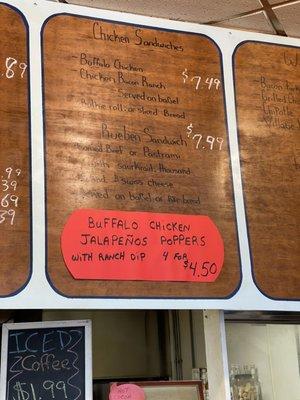 Chicken Sandwiches
- Buffalo Chicken
- Chicken Bacon Ranch
$7.49
- Served on bagel
Bulkie roll or shord Bread
Rueben Sandwich
$7.99
Corned Beef or Pastrami
with Saurkraut, thousand
Island & swiss cheese
Served on bagel or Rye bread
BUFFALO CHICKEN
JALAPEÑOS POPPERS
WITH RANCH DIP 4 FOR
$4.50
.89
.99
.39
.69
.39
W
Bacon
Grilled
Chipotle
Village
ICED
Coffee
$1.99